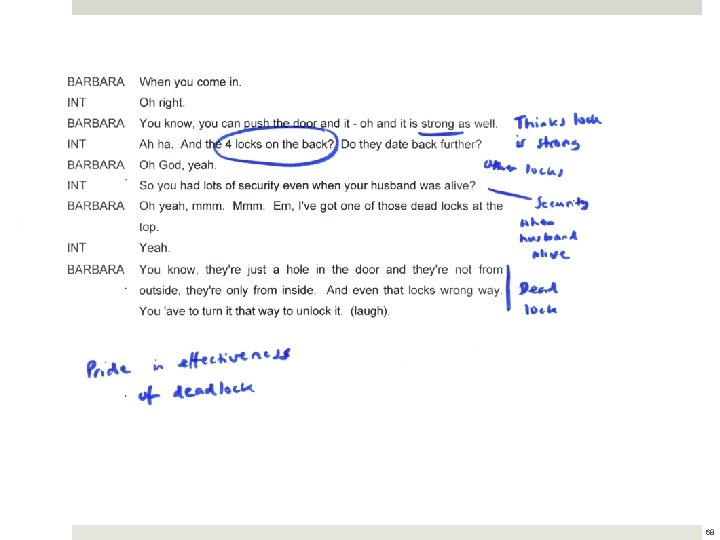 BARBARA When you come in.
INT Oh right.
BARBARA You know, you can push the door and it - oh and it is strong as well. Thinks lock
INT Ah ha. And the 4 locks on the back? Do they date back further? is strong
BARBARA Oh God, yeah. Other locks
INT So you had lots of security even when your husband was alive?
BARBARA Oh yeah, mmm. Mmm. Em, I've got one of those dead locks at the Security
top. when
husband
INT Yeah. alive
BARBARA You know, they're just a hole in the door and they're not from
outside, they're only from inside. And even that locks wrong way. Dead
You 'ave to turn it that way to unlock it. (laugh). lock
Pride in effectiveness
of deadlock
68